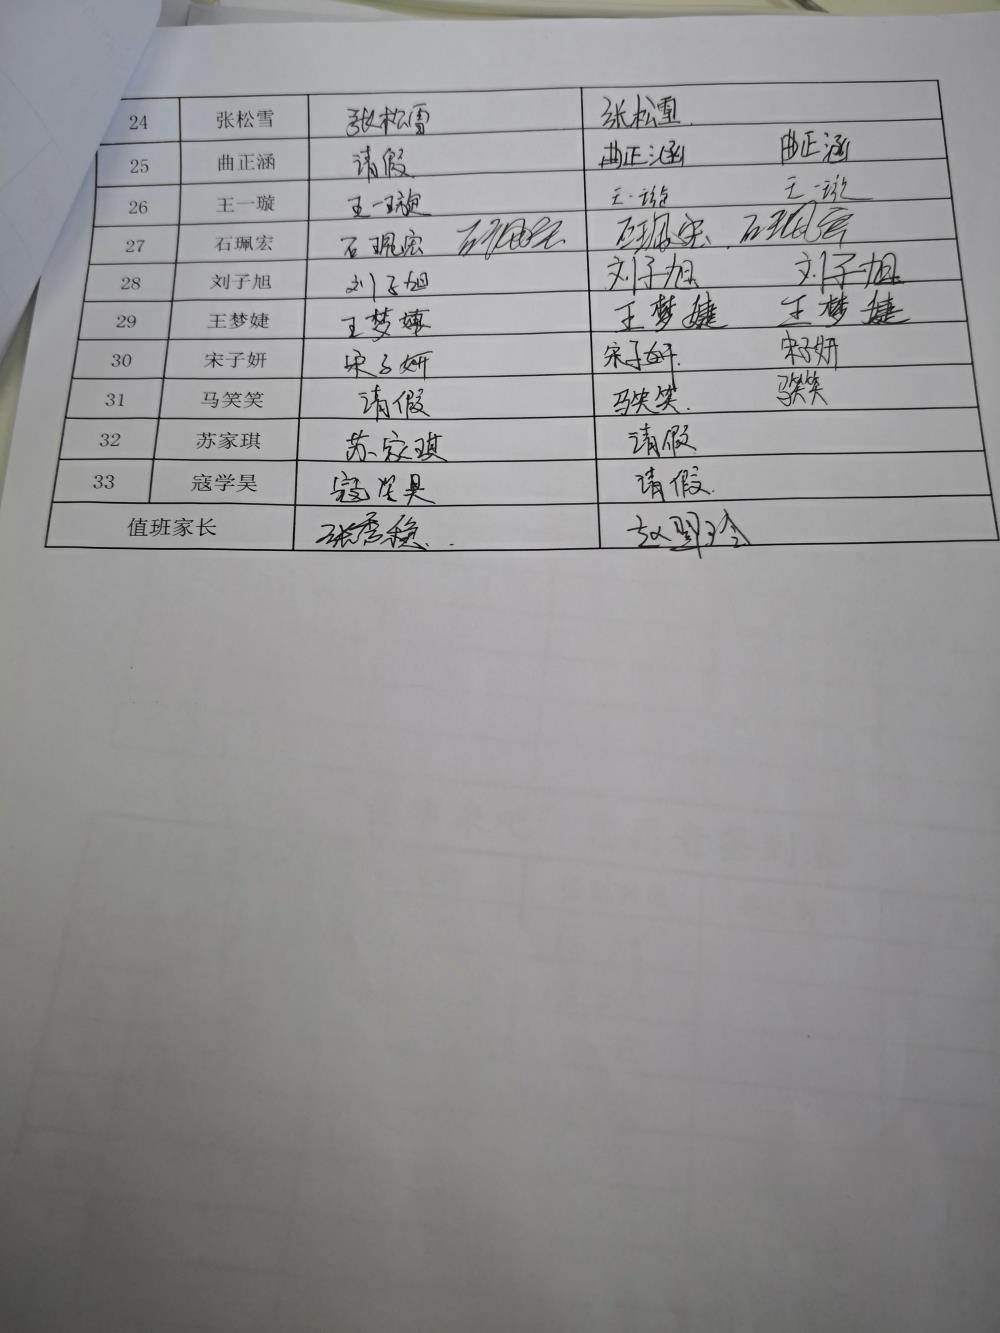 24 张松雪 张松雪 张松雪
25 曲正涵 请假 曲正涵 曲正涵
26 王一璇 王一璇 王一璇 王一璇
27 石珮宏 石珮宏 石珮宏 石珮宏 石珮宏
28 刘子旭 刘子旭 刘子旭 刘子旭
29 王梦婕 王梦婕 王梦婕 王梦婕
30 宋子妍 宋子妍 宋子妍 宋子妍
31 马笑笑 请假 马笑笑 马笑笑
32 苏家琪 苏家琪 请假
33 寇学昊 寇学昊 请假
值班家长 张秀稳 赵翠玲